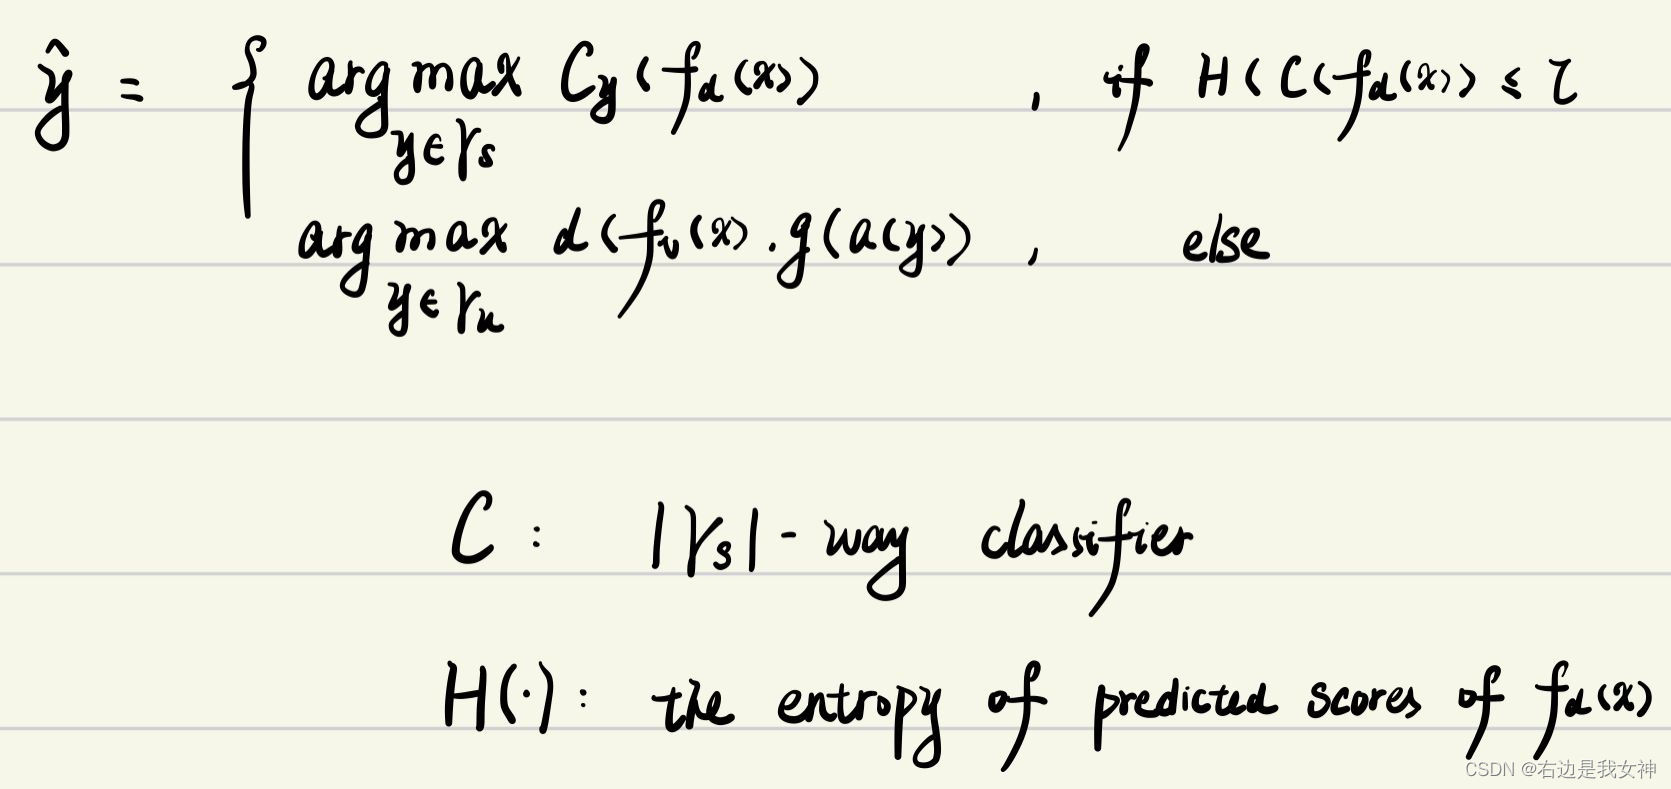 ŷ = { arg max C_y(f_d(x)) , if H(C(f_d(x)) ≤ τ
y∈γ_s
arg max d(f_v(x).g(a(y)) , else
y∈γ_u
C : |γ_s| - way classifier
H(·) : the entropy of predicted scores of f_d(x)
CSDN @右边是我女神